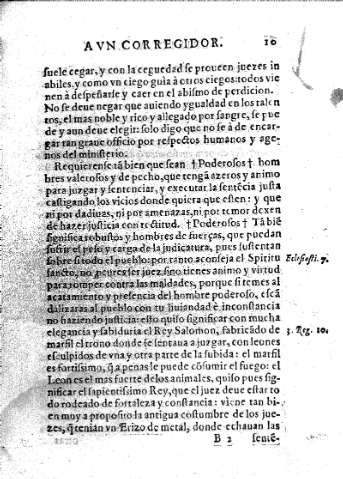 AVN CORREGIDOR. 10
suele cegar, y con la ceguedad se proueen juezes in
abiles, y como vn ciego guia à otros ciegos: todos vie
nen à despeñarse y caer en el abismo de perdicion.
No se deue negar que auiendo ygualdad en los talen
tos, el mas noble y rico y allegado por sangre, se pue
de y aun deue elegir: solo digo que no se à de encar-
gar tan graue officio por respectos humanos y age-
nos del ministerio.
Requierense tābien que sean † Poderosos † hom
bres valerosos y de pecho, que tengā azeros y animo
para juzgar y sentenciar, y executar la sentēcia justa
castigando los vicios donde quiera que esten: y que
ni por dadiuas, ni por amenazas, ni por temor dexen
de hazer justicia con rectitud. † Poderosos † Tābiē
significa robustos y hombres de fuerças, que puedan
sufrir el peso y carga de la judicatura, pues sustentan
sobre si todo el pueblo: por tanto aconseja el Spiritu Eclesiasti. 7.
sancto, no peures ser juez sino tienes animo y virtud
para romper contra las maldades, porque si temes al
acatamiento y presencia del hombre poderoso, escā
dalizaras al pueblo con tu liuiandad è inconstancia
no haziendo justicia: esto quiso significar con mucha
elegancia y sabiduria el Rey Salomon, fabricādo de 3. Reg. 10.
marfil el trono donde se sentaua a juzgar, con leones
esculpidos de vna y otra parte de la subida: el marfil
es fortissimo, q̄ a penas le puede cōsumir el fuego: el
Leon es el mas fuerte de los animales, quiso pues sig-
nificar el sapientissimo Rey, que el juez deue estar to
do rodeado de fortaleza y constancia: viene tan bi-
en muy a proposito la antigua costumbre de los jue-
zes, q̄ tenian vn Erizo de metal, donde echauan las
B 2 sente-